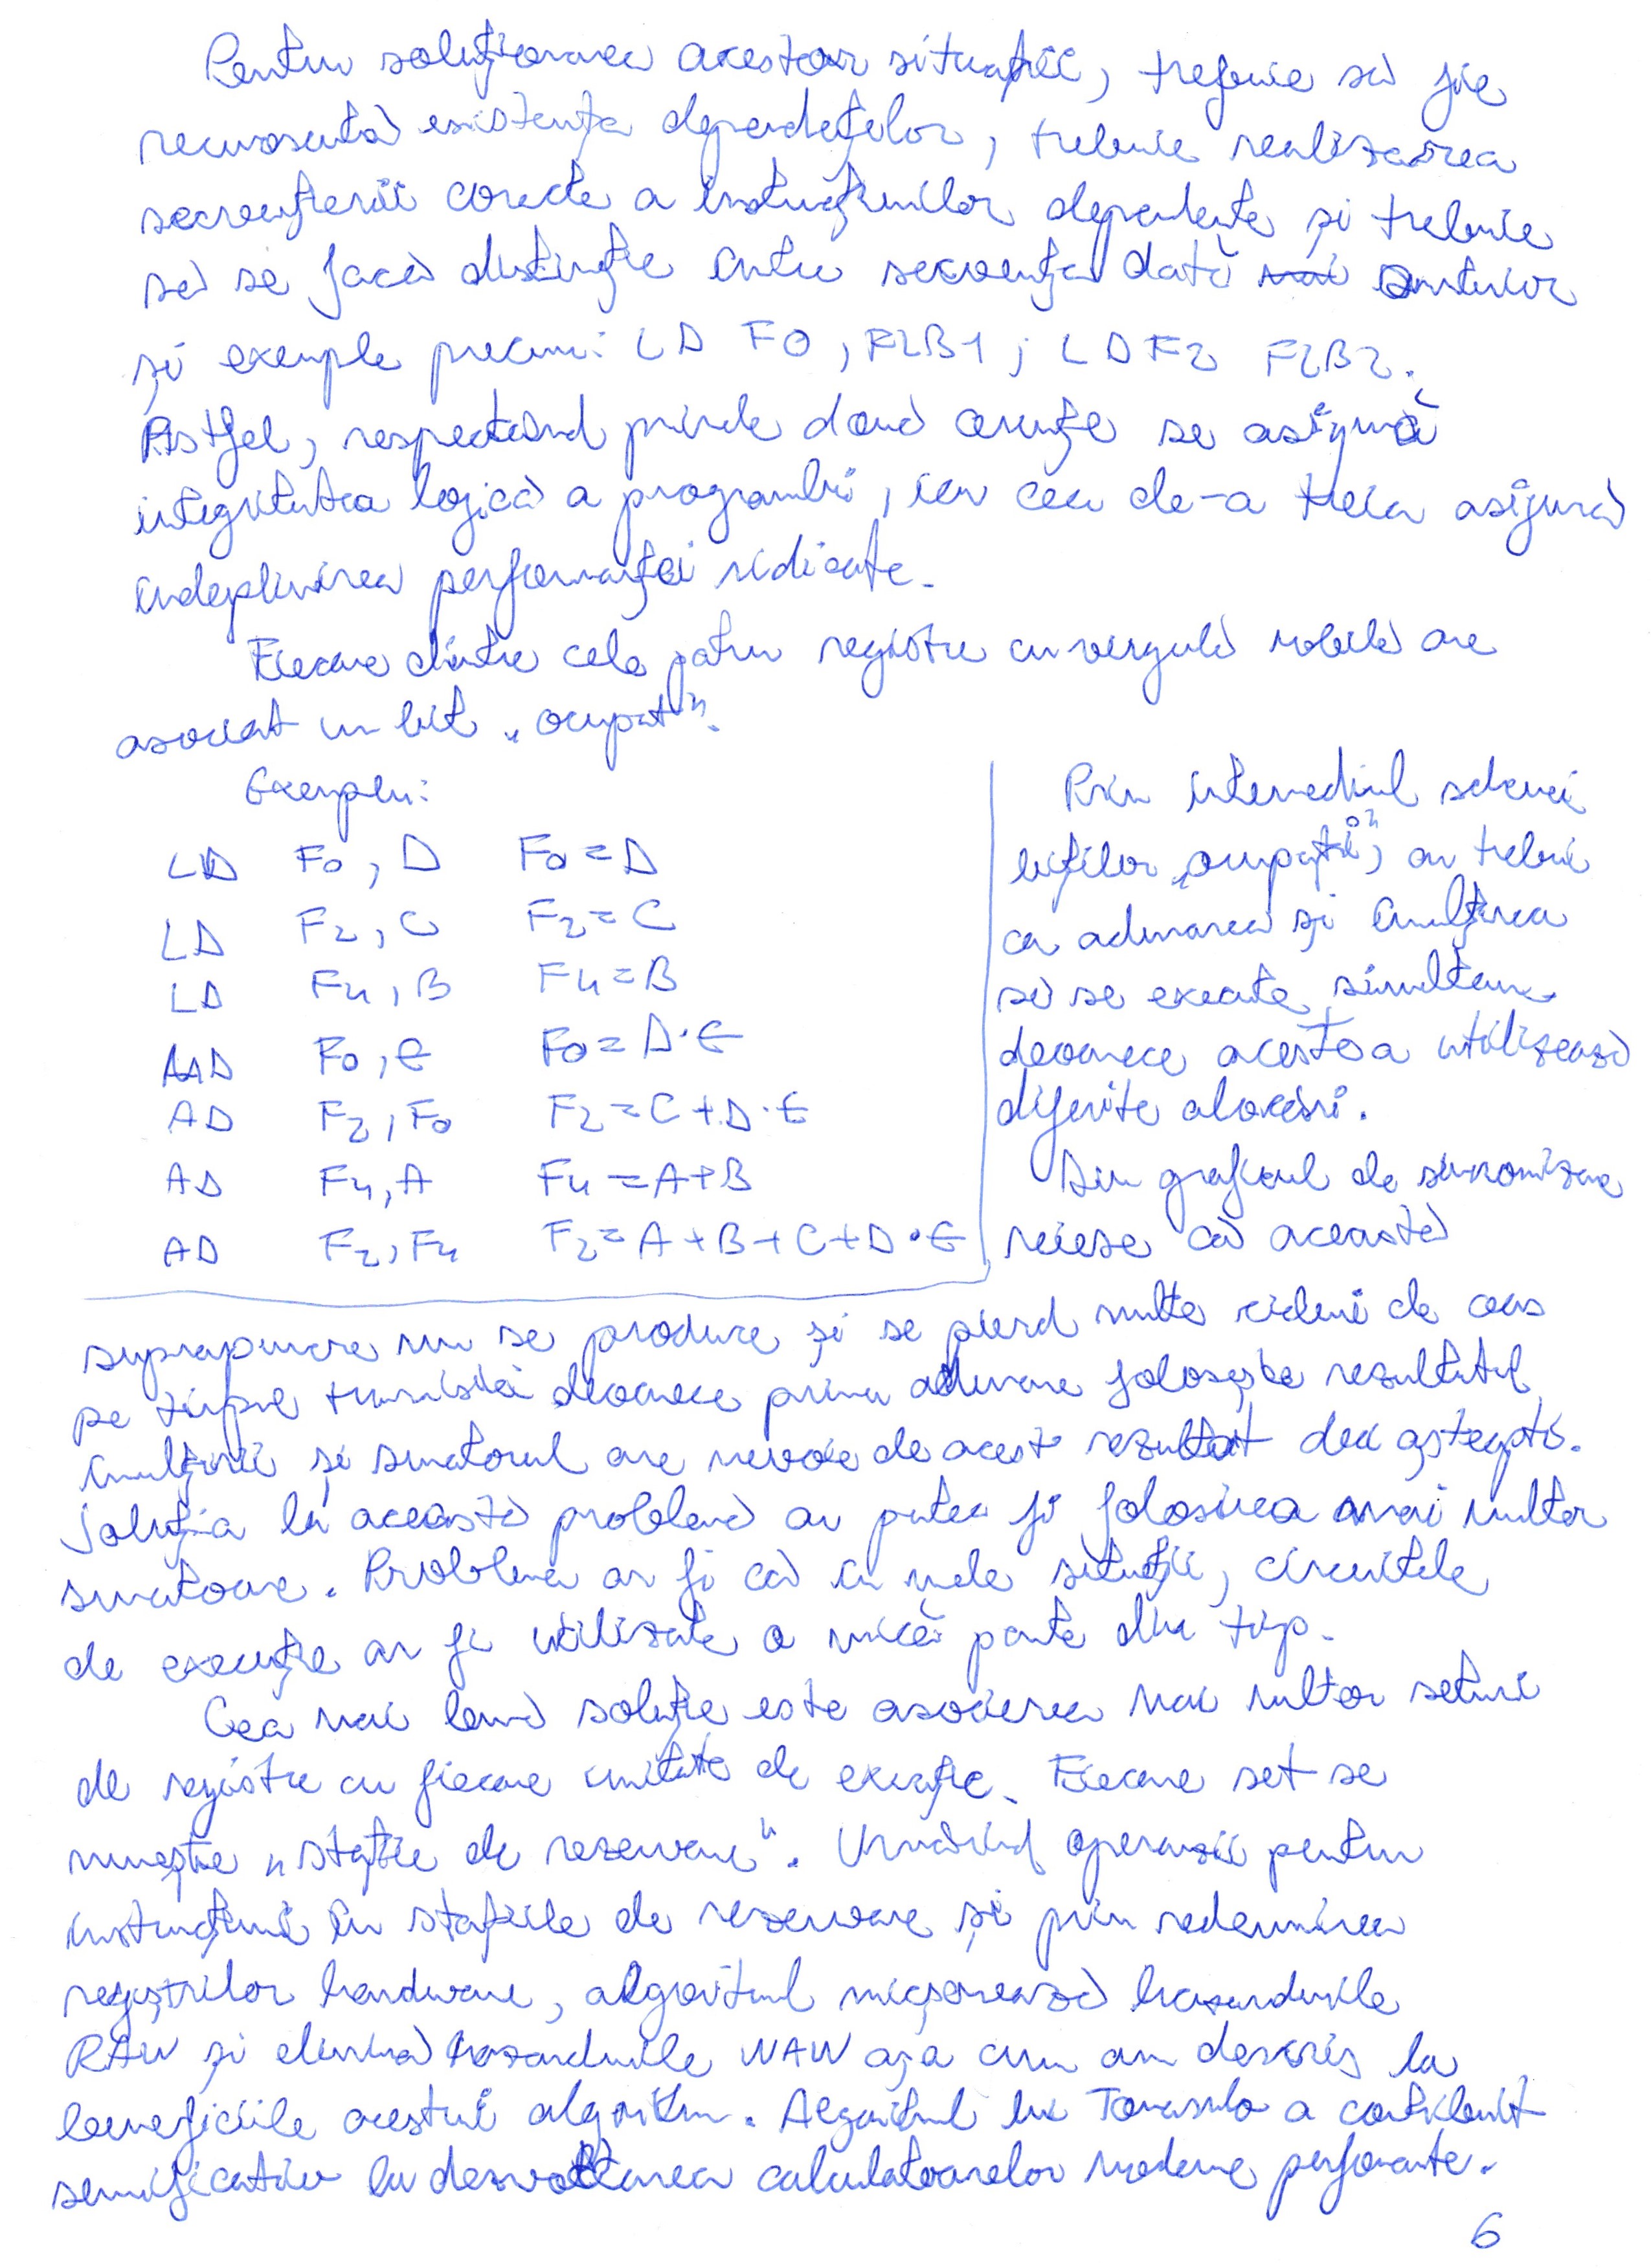 Pentru soluționarea acestor situații, trebuie să fie
recunoscută existența dependețelor, trebuie realizarea
secvențierii corecte a instrucțiunilor dependente și trebuie
să se facă distincție între secvența dată anterior
și exemple precum: LD F0, FLB1; LD F2 FLB2.
Astfel, respectând primele două cerințe se asigură
integritatea logică a programului, iar cea de-a treia asigură
îndeplinirea performanței ridicate.
Fiecare dintre cele patru registre cu virgulă mobilă are
asociat un bit „ocupat".
Exemplu:
LD F0, D F0 = D
LD F2, C F2 = C
LD F4, B F4 = B
MD F0, E F0 = D·E
AD F2, F0 F2 = C + D·E
AD F4, A F4 = A+B
AD F2, F4 F2 = A+B+C+D·E
Prin intermediul schemei
biților „ocupați", ar trebui
ca adunarea și înmulțirea
să se execute simultan
deoarece acestea utilizează
diferite alocări.
Din graficul de sincronizare
reiese că această
suprapunere nu se produce și se pierd multe cicluri de ceas
pe timpul transmisiei deoarece prima adunare folosește rezultatul
înmulțirii și sumatorul are nevoie de acest rezultat deci așteaptă.
Soluția la această problemă ar putea fi folosirea mai multor
sumatoare. Problema ar fi că în unele situații, circuitele
de execuție ar fi utilizate o mică parte din timp.
Cea mai bună soluție este asocierea mai multor seturi
de registre cu fiecare unitate de execuție. Fiecare set se
numește „stație de rezervare". Urmărind operanzii pentru
instrucțiuni în stațiile de rezervare și prin redenumirea
regiștrilor hardware, algoritmul micșorează hazardurile
RAW și elimină hazardurile WAW așa cum am descris la
beneficiile acestui algoritm. Algoritmul lui Tomasulo a contribuit
semnificativ la dezvoltarea calculatoarelor moderne performante.
6